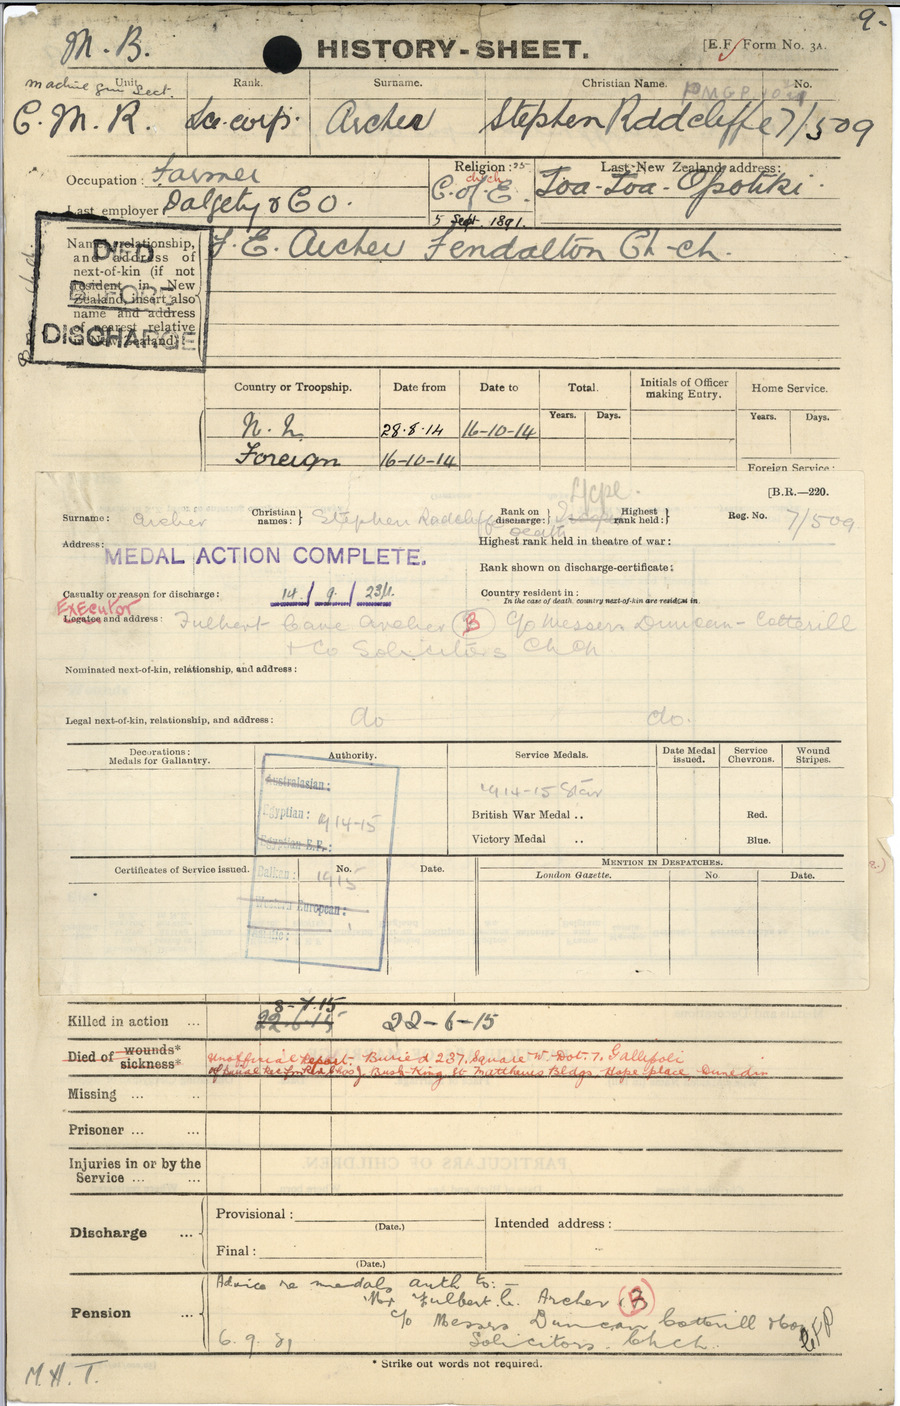 9-
M. B.
HISTORY-SHEET.
[E.F. Form No. 3A.
Unit. Rank. Surname. Christian Name. No.
machine gun Sect.
C. M. R. Lce. corp. Archer Stephen Radcliffe 7/509
Occupation: Farmer
Religion:
C. of E.
Last New Zealand address:
Toa-Toa-Opotiki.
Last employer Dalgety & Co.
5 Sept. 1891.
Name, relationship, and address of next-of-kin (if not resident in New Zealand, insert also name and address of nearest relative in New Zealand)
F. E. Archer Fendalton Ch-ch.
DIED
BEFORE
DISCHARGE
Country or Troopship. Date from Date to Total. Initials of Officer making Entry. Home Service.
Years. Days. Years. Days.
N. Z. 28.8.14 16-10-14
Foreign 16-10-14
Foreign Service:
[B.R.—220.
L/Cpl.
Surname: Archer Christian names: } Stephen Radcliffe Rank on discharge: } Highest rank held: } Reg. No. 7/509
Death
Address:
MEDAL ACTION COMPLETE.
Highest rank held in theatre of war:
Rank shown on discharge-certificate:
Casualty or reason for discharge: 14/9/23
Country resident in:
In the case of death, country next-of-kin are resident in.
Executor
Legatee and address: Fulbert Archer B C/o Messers Duncan-Cotterill
& Co Solicitors Ch Ch
Nominated next-of-kin, relationship, and address:
Legal next-of-kin, relationship, and address: do do.
Decorations: Medals for Gallantry. Authority. Service Medals. Date Medal issued. Service Chevrons. Wound Stripes.
Australasian:
1914-15 Star
Egyptian: 1914-15
British War Medal .. Red.
Egyptian E.F.:
Victory Medal .. Blue.
Certificates of Service issued. No. Date. MENTION IN DESPATCHES.
London Gazette. No Date.
Balkan: 1915
Western European:
Pacific:
8-7-15
Killed in action ... 22-6-15 22-6-15
Died of wounds* sickness*
Unofficial Report. Buried 237. Square W. Dot. 7. Gallipoli
J Bush-King St Matthews Bldgs. Hope place, Dunedin
Missing ... ...
Prisoner ... ...
Injuries in or by the Service ... ...
Discharge ...
Provisional:
(Date.)
Intended address:
Final:
(Date.)
Pension ...
Advice re medals auth to:—
Mr Fulbert. C. Archer B
c/o Messrs Duncan Cotterill & Co
6. 9. 21 Solicitors. Chch.
* Strike out words not required.
M. H. T.